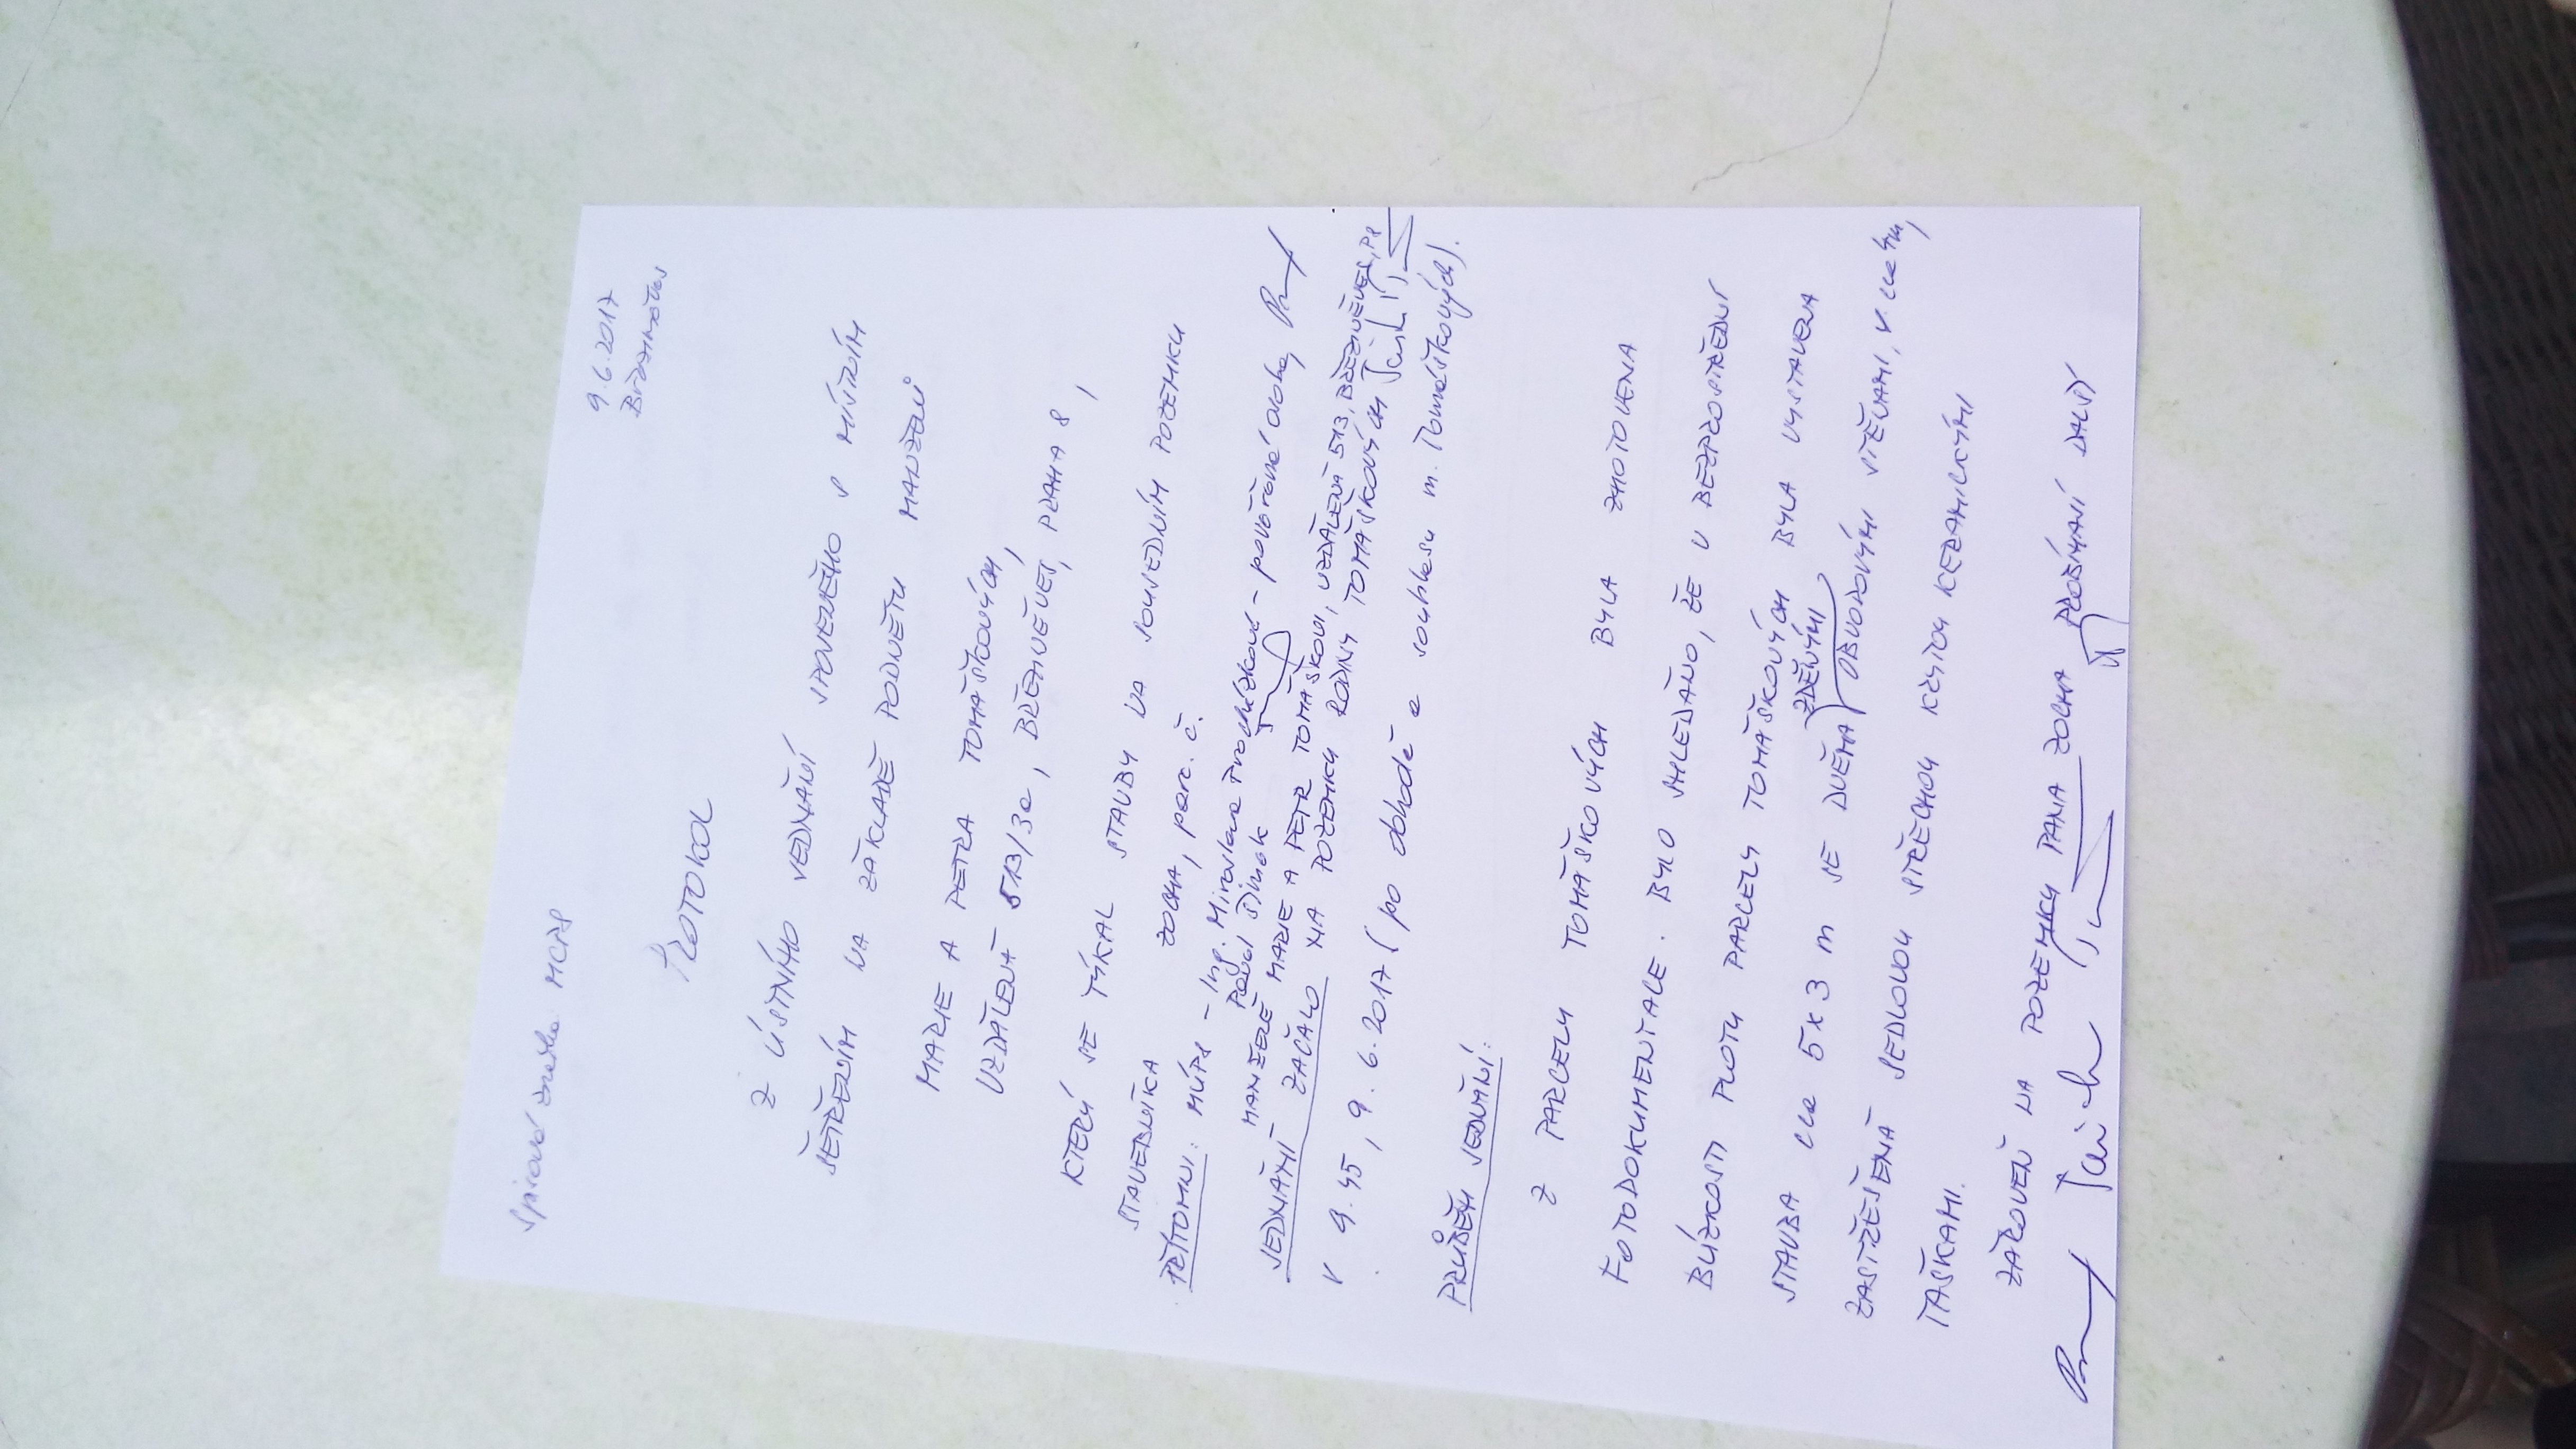 Spisová značka MCP8
9.6.2017
Březiněves
PROTOKOL
Z ÚSTNÍHO JEDNÁNÍ SPOJENÉHO S MÍSTNÍM
ŠETŘENÍM NA ZÁKLADĚ PODNĚTU MANŽELŮ
MARIE A PETRA TOMÁŠKOVÝCH,
VZDÁLENÁ 513/3a, BŘEZINĚVES, PRAHA 8,
KTERÝ SE TÝKAL STAVBY NA SOUSEDNÍM POZEMKU
STAVEBNÍKA ZOCHA, parc. č.
PŘÍTOMNI: MÚP8 - Ing. Miroslava - pověřená osoba,
Pavel Šimek
MANŽELÉ MARIE A PETR TOMÁŠKOVI, VZDÁLENÁ 513, BŘEZINĚVES, P8
JEDNÁNÍ ZAČALO NA POZEMKU RODINY TOMÁŠKOVÝCH
V 9.45, 9.6.2017 (po dohodě a souhlasu m. Tomáškových).
PRŮBĚH JEDNÁNÍ:
Z PARCELY TOMÁŠKOVÝCH BYLA ZHOTOVENA
FOTODOKUMENTACE. BYLO SHLEDÁNO, ŽE V BEZPROSTŘEDNÍ
BLÍZKOSTI PLOTU PARCELY TOMÁŠKOVÝCH BYLA VYSTAVENA
STAVBA cca 5x3 m SE DVĚMA ZDĚNÝMI OBVODOVÝMI STĚNAMI, V cca 4m,
ZASTŘEŠENÁ SEDLOVOU STŘECHOU KRYTOU KERAMICKÝMI
TAŠKAMI.
ZÁROVEŇ NA POZEMKU PANA ZOCHA PROBÍHAJÍ DALŠÍ